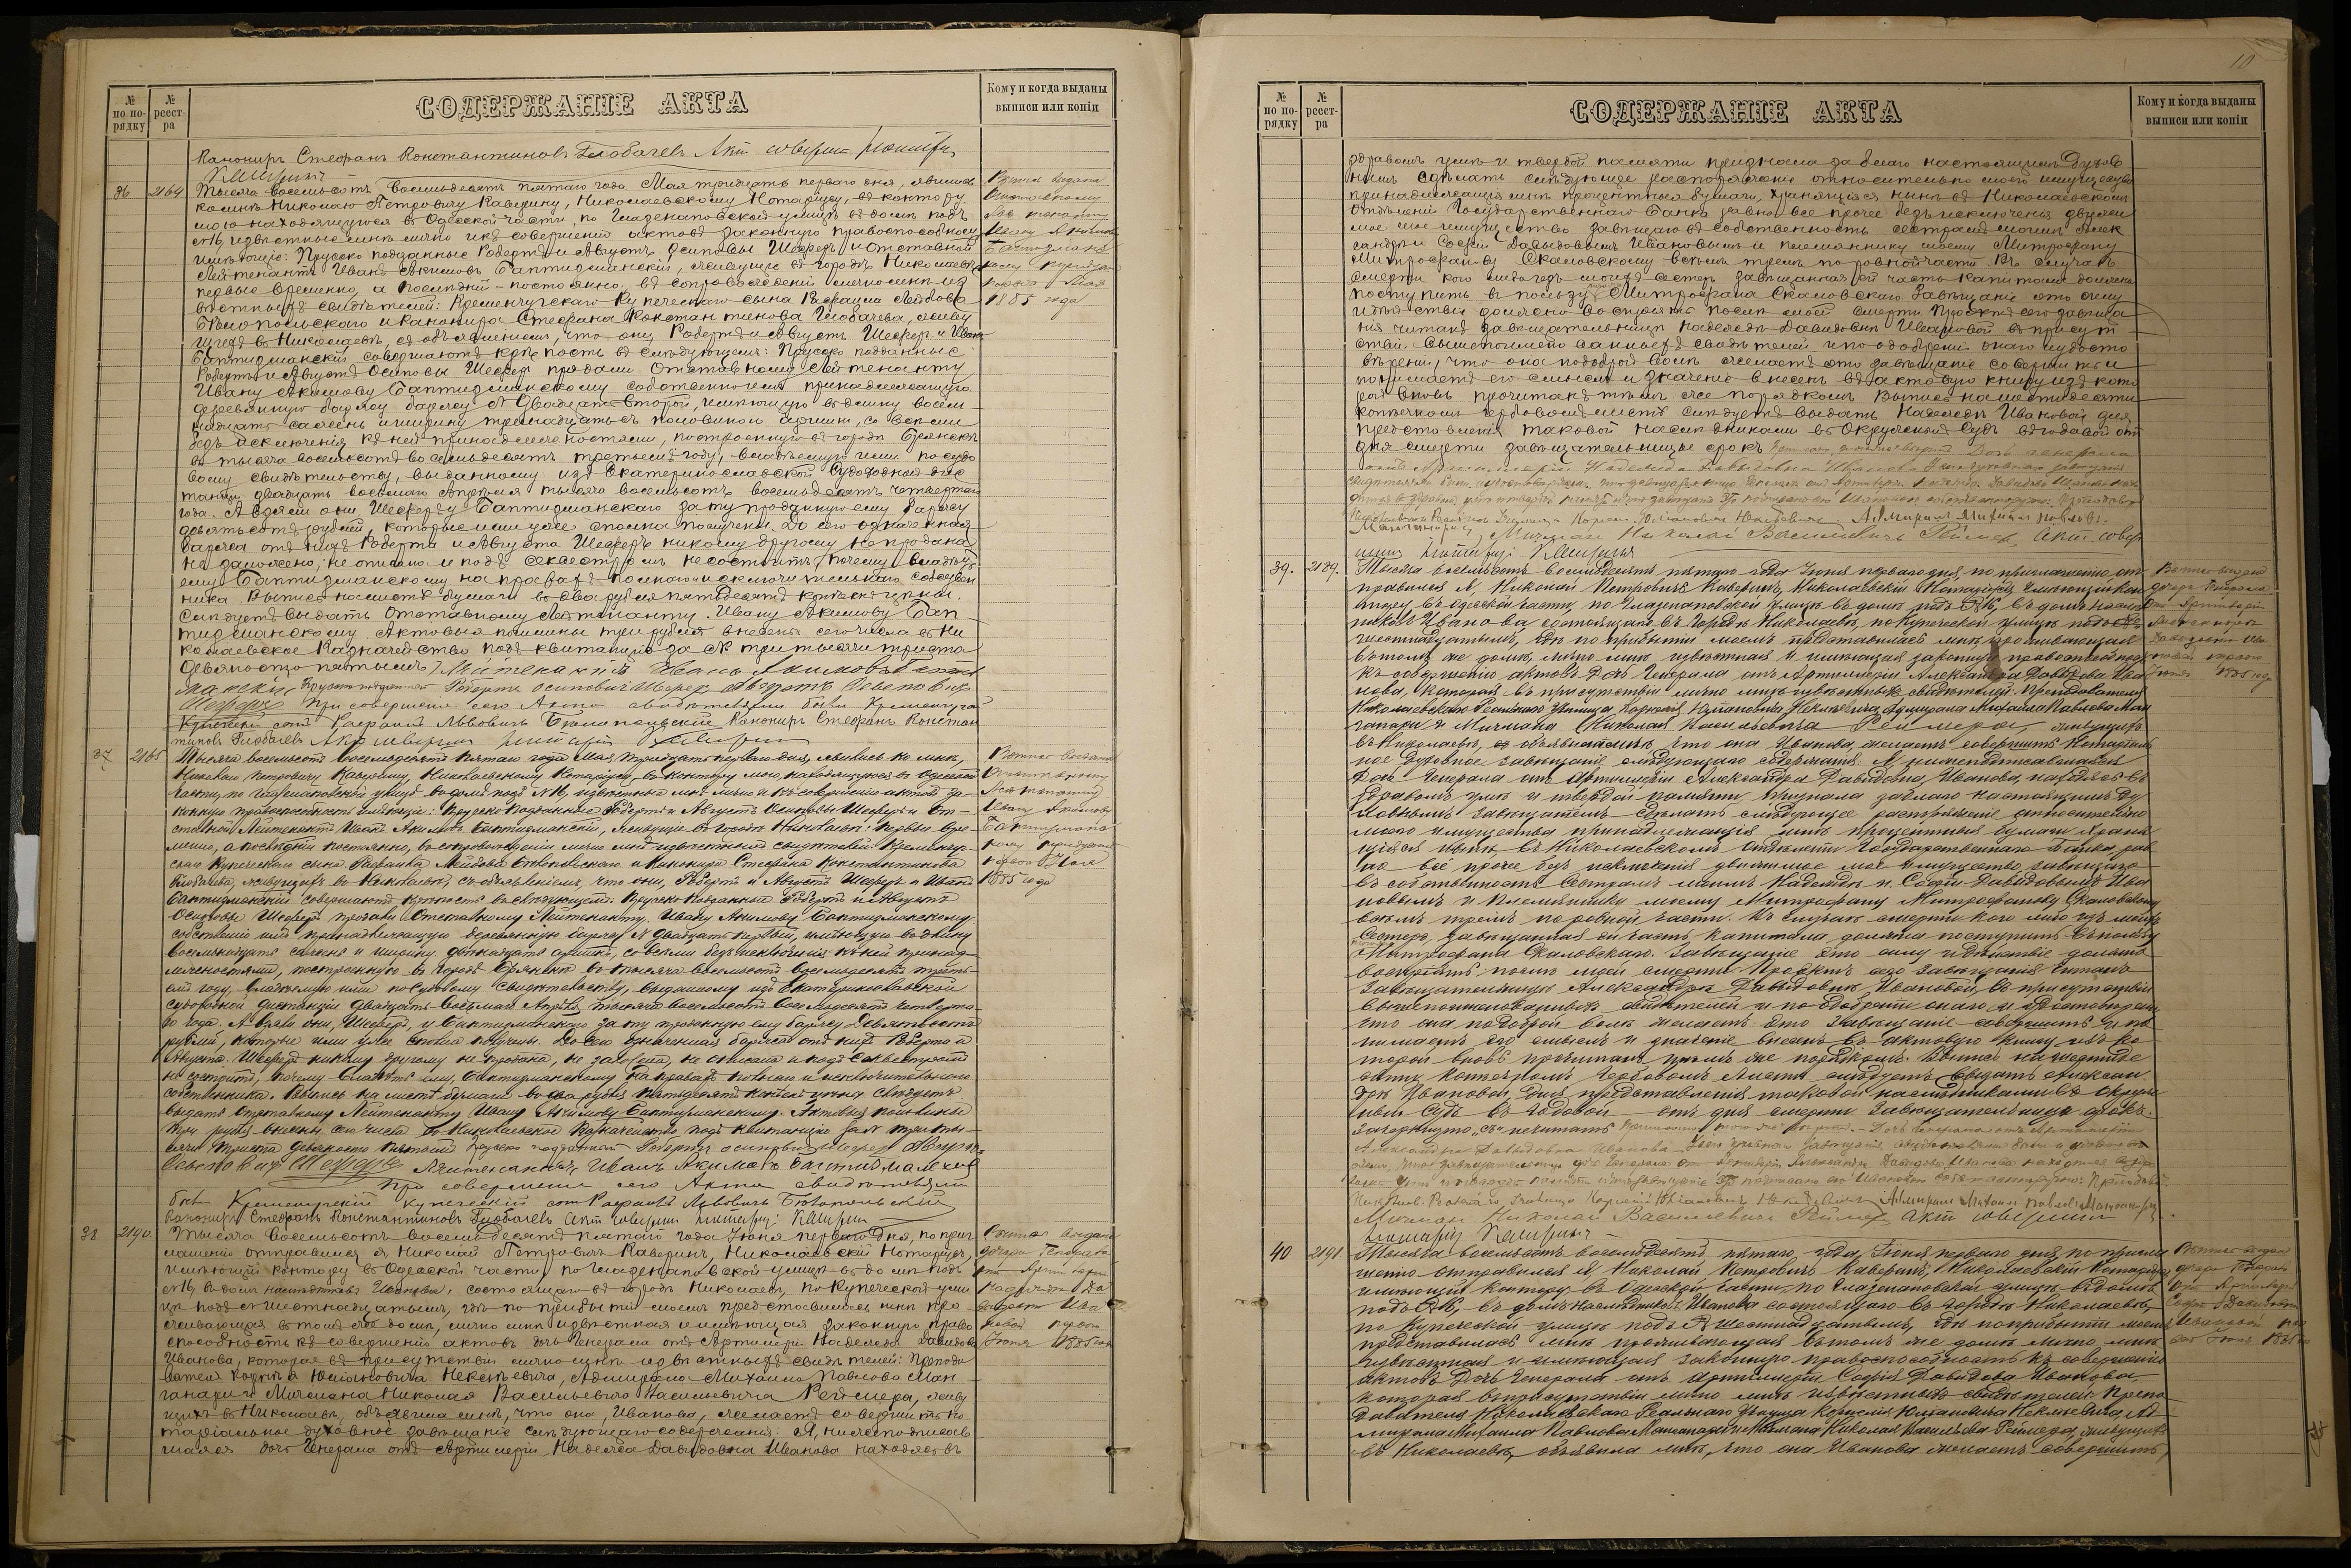 № по по-рядку
№ реест-ра
СОДЕРЖАНІЕ АКТА
Кому и когда выданы выписи или копіи
Канониръ Стефанъ Константиновъ Глобачевъ Актъ совершилъ Нотаріусъ
36 2164 Тысяча восемьсотъ восемьдесятъ пятаго года Мая тридцать перваго дня, явились
ко мнѣ Николаю Петровичу Каверину, Николаевскому Нотаріусу, въ контору
мою находящуюся въ Одесской части, по Глазенаповской улицѣ въ домѣ подъ
№ 16, извѣстные мнѣ лично и къ совершенію актовъ законную правоспособность
имѣющіе: Прусско подданные Робертъ и Августъ Осиповы Шеферъ и Отставной
Лейтенантъ Иванъ Акимовъ Баптизманскій, живущіе въ городѣ Николаевѣ,
первые временно, а послѣдній – постоянно, въ сопровожденіи лично мнѣ из
вѣстныхъ свидѣтелей: Кременчугскаго купеческаго сына Рафаила Лейбова
Бѣлопольскаго и канонира Стефана Константинова Глобачева, живу
щихъ въ Николаевѣ, съ объявленіемъ, что они, Робертъ и Августъ Шеферъ и Иванъ
Баптизманскій совершаютъ крѣпость въ слѣдующемъ: Прусско подданные
Робертъ и Августъ Осиповы Шеферъ продали Отставному Лейтенанту
Ивану Акимову Баптизманскому собственно имъ принадлежащую
деревянную баржу № Двадцать второй, имѣющую въ длину восем
надцать сажень и ширину тринадцать съ половиною аршинъ, со всѣми
безъ исключенія къ ней принадлежностями, построенную въ городѣ Брянскѣ
въ тысяча восемьсотъ восемьдесятъ третьемъ году, владѣемую ими по судо
вому свидѣтельству, выданному изъ Екатеринославской Судоходной дис
танціи двадцать восьмаго Апрѣля тысяча восемьсотъ восемьдесятъ четвертаго
года. А взяли они, Шеферъ у Баптизманскаго за ту проданную ему баржу
девятьсотъ рублей, которые ими уже сполна получены. До сего означенная
баржа отъ нихъ Роберта и Августа Шеферъ никому другому не продана,
не заложена, не описана и подъ секвестромъ не состоитъ, почему владѣть
ему Баптизманскому на правахъ полнаго и исключительнаго собствен
ника. Выпись на листѣ бумаги въ два рубля пятьдесятъ копѣекъ цѣны
слѣдуетъ выдать Отставному Лейтенанту Ивану Акимову Бап
тизманскому. Актовыя пошлины три рубля внесены сего числа въ Ни
колаевское Казначейство подъ квитанцію за № три тысячи триста
девяносто пятымъ. Лейтенантъ Иванъ Акимовъ Баптиз
манскій, Прусскоподданный Робертъ Осиповичъ Шеферъ Августъ Осиповичъ
Шеферъ При совершеніи сего Акта свидѣтелями были Кременчугскій
Купеческій сынъ Рафаилъ Львовичъ Бѣлопольскій Канониръ Стефанъ Констан
тиновъ Глобачевъ Актъ совершилъ Нотаріусъ Каверинъ
Выпись выдана
Отставному
Лейтенанту
Ивану Акимову
Баптизманс
кому тридцать
перваго Мая
1885 года
37 2165 Тысяча восемьсотъ восемьдесятъ пятаго года Мая тридцать перваго дня, явились ко мнѣ,
Николаю Петровичу Каверину, Николаевскому Нотаріусу, въ контору мою, находящуюся въ Одесской
части, по Глазенаповской улицѣ въ домѣ подъ № 16, извѣстные мнѣ лично и къ совершенію актовъ за
конную правоспособность имѣющіе: Прусско подданные Робертъ и Августъ Осиповы Шеферъ и От
ставной Лейтенантъ Иванъ Акимовъ Баптизманскій, живущіе въ городѣ Николаевѣ: первые вре
менно, а послѣдній постоянно, въ сопровожденіи лично мнѣ извѣстныхъ свидѣтелей: Кременчуг
скаго купеческаго сына Рафаила Лейбова Бѣлопольскаго и Канонира Стефана Константинова
Глобачева, живущихъ въ Николаевѣ, съ объявленіемъ, что они, Робертъ и Августъ Шеферъ и Иванъ
Баптизманскій совершаютъ крѣпость въ слѣдующемъ: Прусско подданные Робертъ и Августъ
Осиповы Шеферъ продали Отставному Лейтенанту Ивану Акимову Баптизманскому
собственно имъ принадлежащую деревянную баржу № Двадцать первый, имѣющую въ длину
восемнадцать сажень и ширину двѣнадцать аршинъ, со всѣми безъ исключенія къ ней принад
лежностями, построенную въ городѣ Брянскѣ въ тысяча восемьсотъ восемьдесятъ треть
емъ году, владѣемую ими по судовому свидѣтельству, выданному изъ Екатеринославской
судоходной дистанціи двадцать восьмаго Апрѣля тысяча восемьсотъ восемьдесятъ четверта
го года. А взяли они, Шеферъ, у Баптизманскаго за ту проданную ему баржу Девятьсотъ
рублей, которые ими уже сполна получены. До сего означенная баржа отъ нихъ Роберта и
Августа Шеферъ никому другому не продана, не заложена, не описана и подъ секвестромъ
не состоитъ, почему владѣть ему, Баптизманскому на правахъ полнаго и исключительнаго
собственника. Выпись на листѣ бумаги въ два рубля пятьдесятъ копѣекъ цѣны слѣдуетъ
выдать Отставному Лейтенанту Ивану Акимову Баптизманскому. Актовыя пошлины
три рубля внесены сего числа въ Николаевское Казначейство подъ квитанцію за № три ты
сячи триста девяносто пятымъ Прусско подданный Робертъ Осиповичъ Шеферъ Августъ
Осиповичъ Шеферъ Лейтенантъ Иванъ Акимовъ Баптизманскій
При совершеніи сего Акта свидѣтелями
были Кременчугскій купеческій сынъ Рафаилъ Львовичъ Бѣлопольскій
Канониръ Стефанъ Константиновъ Глобачевъ Актъ совершилъ Нотаріусъ: Каверинъ
Выпись выдана
Отставному
Лейтенанту
Ивану Акимову
Баптизманс
кому тридцать
перваго Мая
1885 года
38 2190 Тысяча восемьсотъ восемьдесятъ пятаго года Іюня перваго дня, по приг
лашенію отправился я, Николай Петровичъ Каверинъ, Николаевскій Нотаріусъ,
имѣющій контору въ Одесской части, по Глазенаповской улицѣ въ домѣ подъ
№ 16, въ домъ наслѣдниковъ Иванова, состоящаго въ городѣ Николаевѣ, по Купеческой ули
цѣ подъ № шестнадцатымъ, гдѣ по прибытіи моемъ представилась мнѣ про
живающая въ томъ же домѣ, лично мнѣ извѣстная и имѣющая законную право
способность къ совершенію актовъ дочь Генерала отъ Артиллеріи Надежда Давидова
Иванова, которая въ присутствіи лично мнѣ извѣстныхъ свидѣтелей: Препода
вателя Корнилія Юліановича Некневича, Адмирала Михаила Павлова Ман
ганари и Мичмана Николая Васильевича Реймера, живу
щихъ въ Николаевѣ, объявила мнѣ, что она, Иванова, желаетъ совершить но
таріальное духовное завѣщаніе слѣдующаго содержанія: Я, нижеподписав
шаяся дочь Генерала отъ Артиллеріи Надежда Давидовна Иванова находясь въ
Выпись выдана
дочери Генерала
отъ Артиллеріи
Надеждѣ Да
видовой Ива
новой перваго
Іюня 1885 года
10
№ по по-рядку
№ реест-ра
СОДЕРЖАНІЕ АКТА
Кому и когда выданы выписи или копіи
здравомъ умѣ и твердой памяти признала за благо настоящимъ Духов
нымъ сдѣлать слѣдующее распоряженіе относительно моего имущества
принадлежащія мнѣ процентныя бумаги, хранящіяся нынѣ въ Николаевскомъ
Отдѣленіи Государственнаго Банка, равно все прочее безъ исключенія движи
мое мое имущество завѣщаю въ собственность сестрамъ моимъ Алек
сандрѣ и Софіи Давыдовымъ Ивановымъ и племяннику моему Митрофану
Митрофанову Скаловскому всѣмъ тремъ по ровной части. Въ случаѣ
смерти кого либо изъ моихъ сестеръ завѣщанная ей часть капитала должна
поступить въ пользу Митрофана Скаловскаго. Завѣщаніе это силу
и дѣйствіе должно воспріять послѣ моей смерти. Проектъ сего завѣща
нія читанъ завѣщательницѣ Надеждѣ Давидовнѣ Ивановой въ присут
ствіи вышепоименованныхъ свидѣтелей и по одобреніи онаго и удосто
вѣреніи, что она по доброй волѣ желаетъ это завѣщаніе совершить и
понимаетъ его смыслъ и значеніе внесенъ въ актовую книгу изъ кото
рой вновь прочитанъ тѣмъ же порядкомъ. Выпись на шестидесяти
копѣечномъ гербовомъ листѣ слѣдуетъ выдать Надеждѣ Ивановой для
представленія таковой наслѣдниками въ Окружный Судъ въ годовой отъ
дня смерти завѣщательницы срокъ Дочь Генерала
отъ Артиллеріи Надежда Давыдовна Иванова
Адмиралъ Михаилъ Павловъ
Манганари, Мичманъ Николай Васильевичъ Реймеръ Актъ совер
шилъ Нотаріусъ Каверинъ
39. 2189. Тысяча восемьсотъ восемьдесятъ пятаго года Іюня перваго дня, по приглашенію от
правился я, Николай Петровичъ Каверинъ, Николаевскій Нотаріусъ, имѣющій кон
тору въ Одесской части, по Глазенаповской улицѣ въ домѣ подъ № 16, въ домъ наслѣд
никовъ Иванова состоящаго въ городѣ Николаевѣ, по Купеческой улицѣ подъ №
шестнадцатымъ, гдѣ по прибытіи моемъ представилась мнѣ проживающая
въ томъ же домѣ, лично мнѣ извѣстная и имѣющая законную правоспособность
къ совершенію актовъ Дочь Генерала отъ Артиллеріи Александра Давыдова Ива
нова, которая въ присутствіи лично мнѣ извѣстныхъ свидѣтелей: Преподавателя
Николаевскаго Реальнаго Училища Корнилія Юліановича Некневича, Адмирала Михаила Павлова Ман
ганари и Мичмана Николая Васильевича Реймера, живущихъ
въ Николаевѣ, объявила мнѣ, что она Иванова, желаетъ совершить нотаріаль
ное духовное завѣщаніе слѣдующаго содержанія: Я нижеподписавшаяся
Дочь Генерала отъ Артиллеріи Александра Давидовна Иванова, находясь въ
здравомъ умѣ и твердой памяти, признала за благо настоящимъ Ду
ховнымъ завѣщаніемъ сдѣлать слѣдующее распоряженіе относительно
моего имущества принадлежащія мнѣ процентныя бумаги храня
щіяся нынѣ въ Николаевскомъ Отдѣленіи Государственнаго Банка, рав
но всё прочее безъ исключенія движимое мое имущество завѣщаю
въ собственность Сестрамъ моимъ Надеждѣ и Софіи Давыдовымъ Ива
новымъ и племяннику моему Митрофану Митрофанову Скаловскому
всѣмъ тремъ по ровной части. Въ случаѣ смерти кого либо изъ моихъ
Сестеръ, завѣщанная ей часть капитала должна поступить въ пользу
Митрофана Скаловскаго. Завѣщаніе это силу и дѣйствіе должно
воспріять послѣ моей смерти. Проектъ сего завѣщанія читанъ
завѣщательницѣ Александрѣ Давидовнѣ Ивановой, въ присутствіи
вышепоименованныхъ свидѣтелей и по одобреніи онаго и удостовѣреніи
что она по доброй волѣ желаетъ это завѣщаніе совершить и по
нимаетъ его смыслъ и значеніе внесенъ въ актовую книгу изъ ко
торой вновь прочитанъ тѣмъ же порядкомъ. Выпись на шестиде
сяти копѣечномъ гербовомъ листѣ слѣдуетъ выдать Александ
рѣ Ивановой, для представленія таковой наслѣдниками въ Окруж
ный Судъ въ годовой отъ дня смерти завѣщательницы срокъ.
Зачеркнуто „съ" нечитать Дочь Генерала отъ Артиллеріи
Александра Давыдовна Иванова
Адмиралъ Михаилъ Павловъ Манганари
Мичманъ Николай Васильевичъ Реймеръ Актъ совершилъ
Нотаріусъ Каверинъ
Выпись выдана
дочери Генерала
отъ Артиллеріи
Александрѣ
Давыдовой Ива
новой перваго
Іюня 1885 года
40 2191. Тысяча восемьсотъ восемьдесятъ пятаго года, Іюня перваго дня, по пригла
шенію отправился я, Николай Петровичъ Каверинъ, Николаевскій Нотаріусъ,
имѣющій контору въ Одесской части, по Глазенаповской улицѣ въ домѣ
подъ № 16, въ домъ наслѣдниковъ Иванова состоящаго въ городѣ Николаевѣ,
по Купеческой улицѣ подъ № шестнадцатымъ, гдѣ по прибытіи моемъ
представилась мнѣ проживающая въ томъ же домѣ лично мнѣ
извѣстная и имѣющая законную правоспособность къ совершенію
актовъ Дочь Генерала отъ Артиллеріи Софія Давидова Иванова
которая въ присутствіи лично мнѣ извѣстныхъ свидѣтелей: Препо
давателя Николаевскаго Реальнаго Училища Корнилія Юліановича Некневича, Ад
мирала Михаила Павлова Манганари и Мичмана Николая Васильева Реймера, живущихъ
въ Николаевѣ, объявила мнѣ, что она Иванова желаетъ совершить
Выпись выдана
дочери Генерала
отъ Артиллеріи
Софіи Давидовой
Ивановой пер
ваго Іюня 1885 года